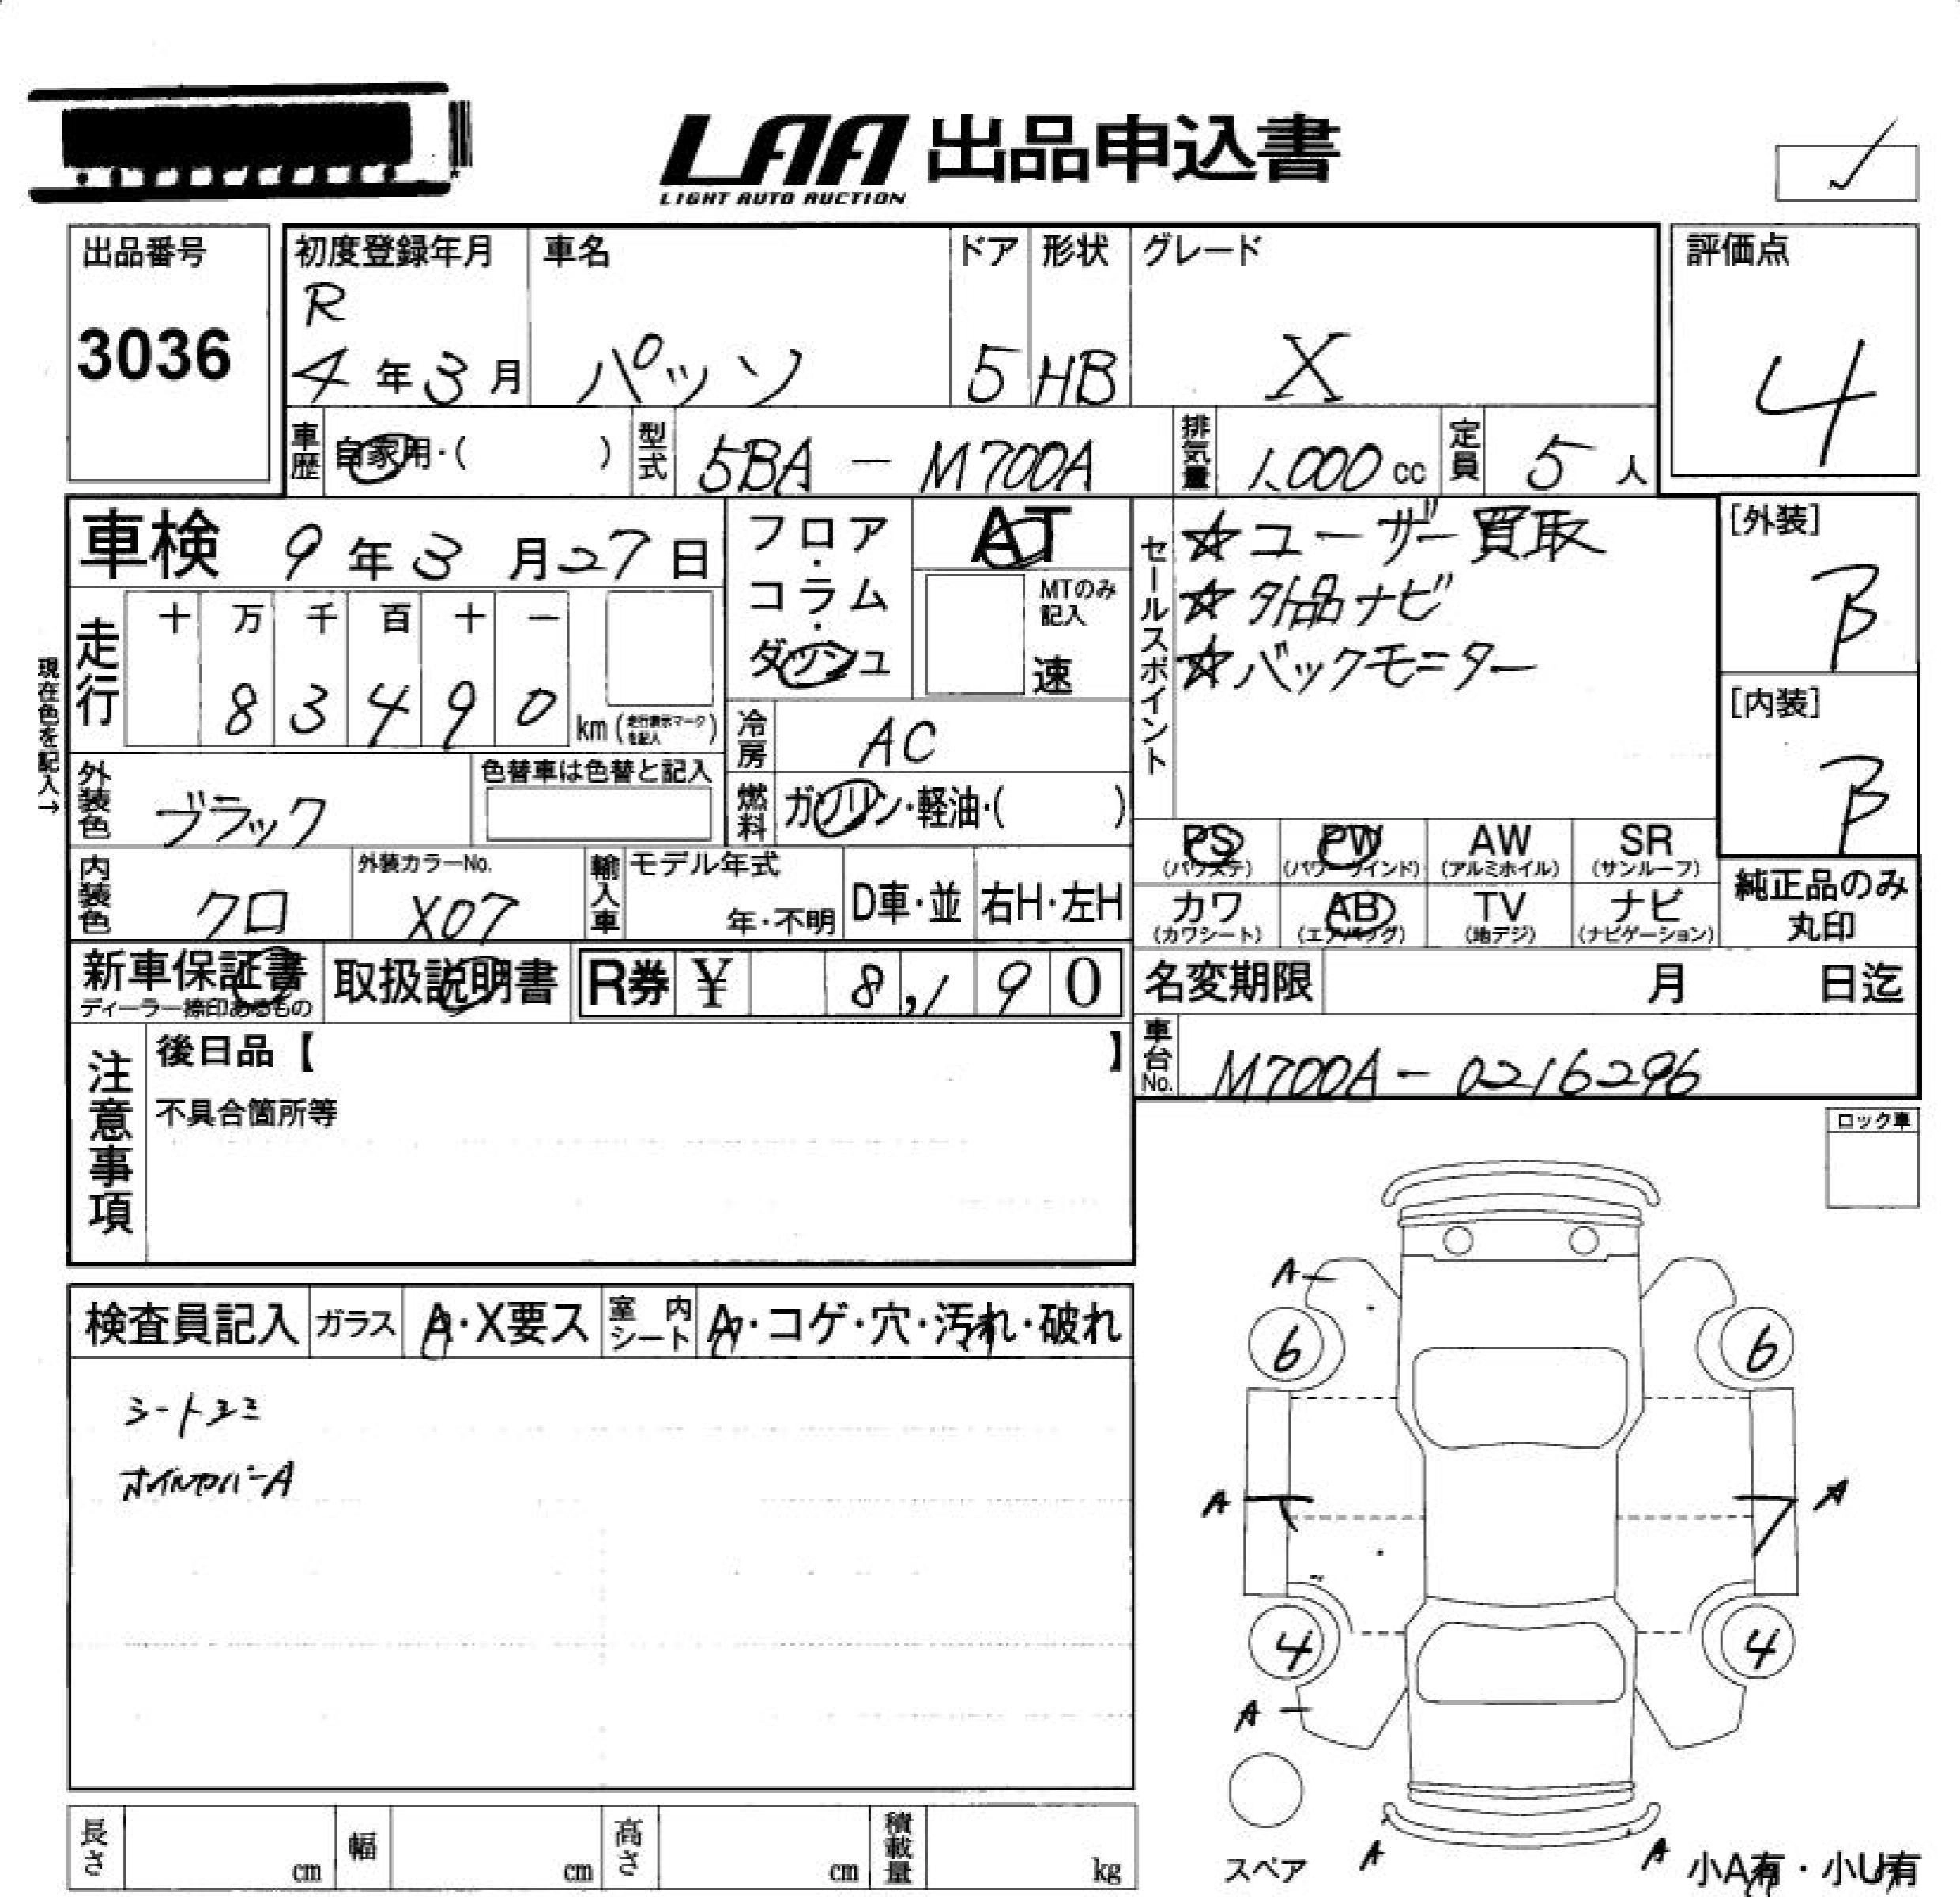 LAA 出品申込書
LIGHT AUTO AUCTION
出品番号
3036
初度登録年月
R
4年3月
車名
パッソ
ドア
5
形状
HB
グレード
X
評価点
4
車歴 自家用・( )
型式 5BA-M700A
排気量 1,000cc
定員 5人
車検 9年3月27日
フロア・コラム・ダッシュ
AT
MTのみ記入
速
セールスポイント
☆ユーザー買取
☆外品ナビ
☆バックモニター
[外装]
B
[内装]
B
現在色を記入→
走行
十 万 千 百 十 一
8 3 4 9 0 km (走行表示マークを記入)
冷房 AC
外装色 ブラック
色替車は色替と記入
燃料 ガソリン・軽油・( )
内装色 クロ
外装カラーNo.
X07
輸入車
モデル年式
年・不明
D車・並
右H・左H
PS (パワステ)
PW (パワーウインド)
AW (アルミホイル)
SR (サンルーフ)
カワ (カワシート)
AB (エアバッグ)
TV (地デジ)
ナビ (ナビゲーション)
純正品のみ丸印
新車保証書
ディーラー捺印あるもの
取扱説明書
R券 ¥ 8,190
名変期限 月 日迄
車台No. M700A-0216296
注意事項
後日品【 】
不具合箇所等
ロック車
検査員記入
ガラス A・X要ス
室内シート A・コゲ・穴・汚れ・破れ
シートヨゴミ
ホイルカバーA
A
6 6
A A
4 4
A
スペア
A A
小A有・小U有
長さ cm
幅 cm
高さ cm
積載量 kg